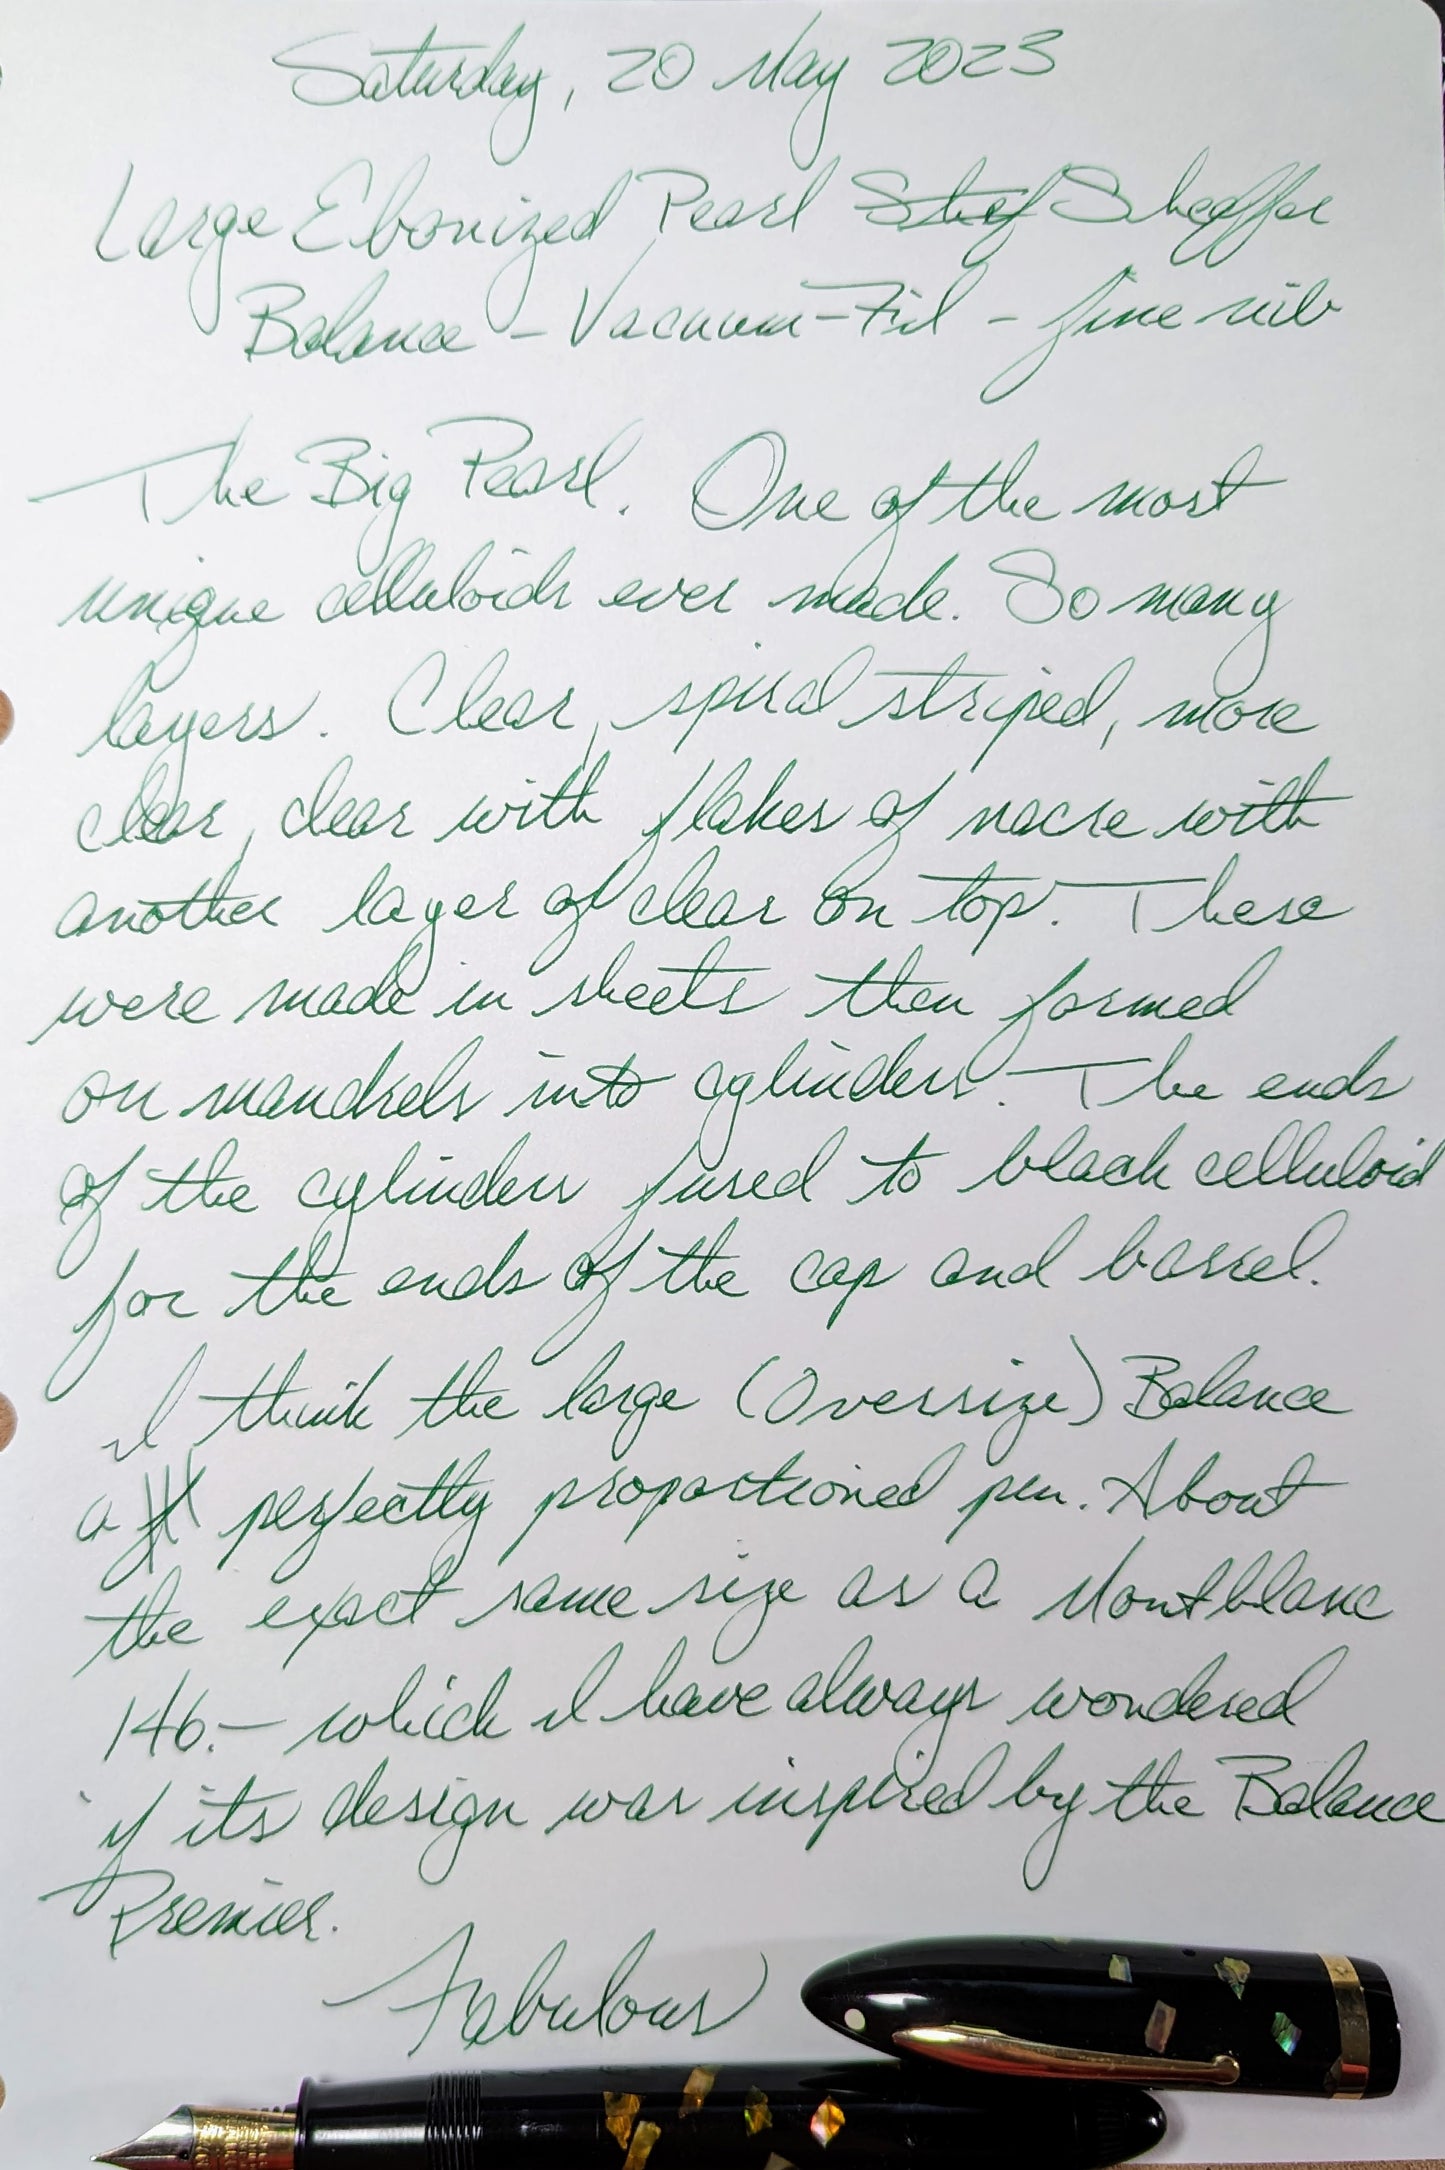 Saturday, 20 May 2023
Large Ebonized Pearl Shef Sheaffer
Balance - Vacuum-Fil - fine nib
The Big Pearl. One of the most
unique celluloids ever made. So many
layers. Clear, spiral striped, more
clear, clear with flakes of nacre with
another layer of clear on top. These
were made in sheets then formed
on mandrels into cylinders. The ends
of the cylinders fused to black celluloid
for the ends of the cap and barrel.
I think the large (Oversize) Balance
a perfectly proportioned pen. About
the exact same size as a Montblanc
146. - which I have always wondered
if its design was inspired by the Balance
Premier.
Fabulous